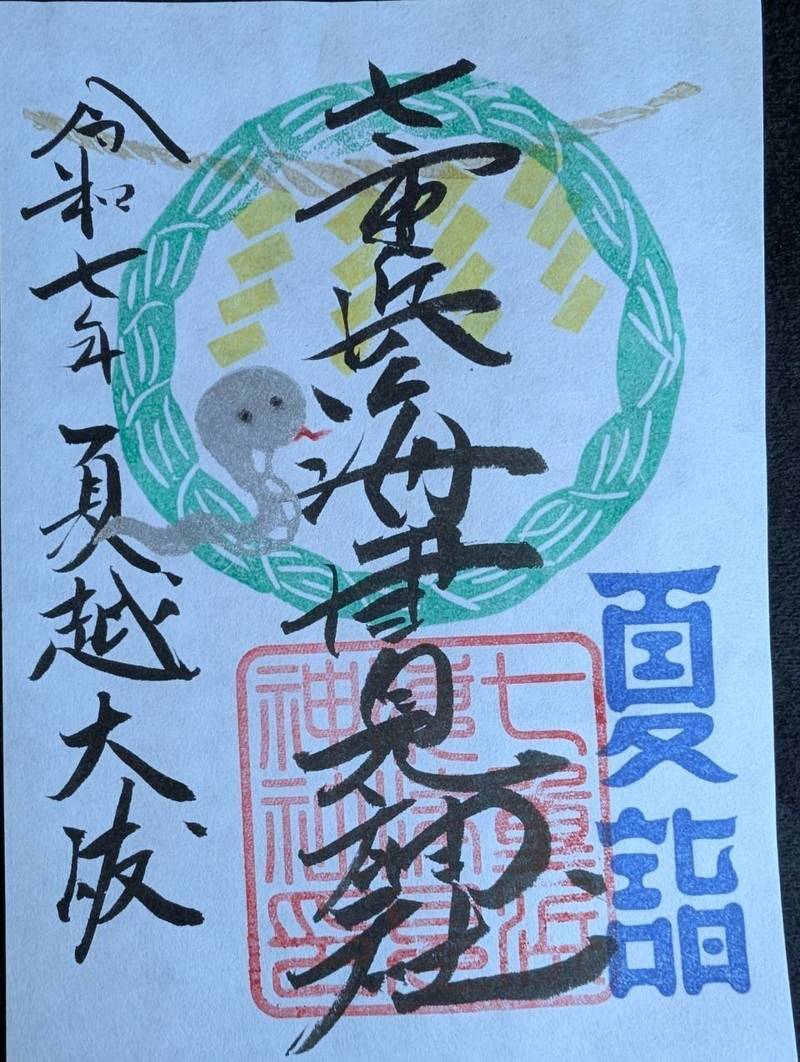 夏詣
七重浜海津見神社
七重浜
海津見
神社印
令和七年 夏越大祓